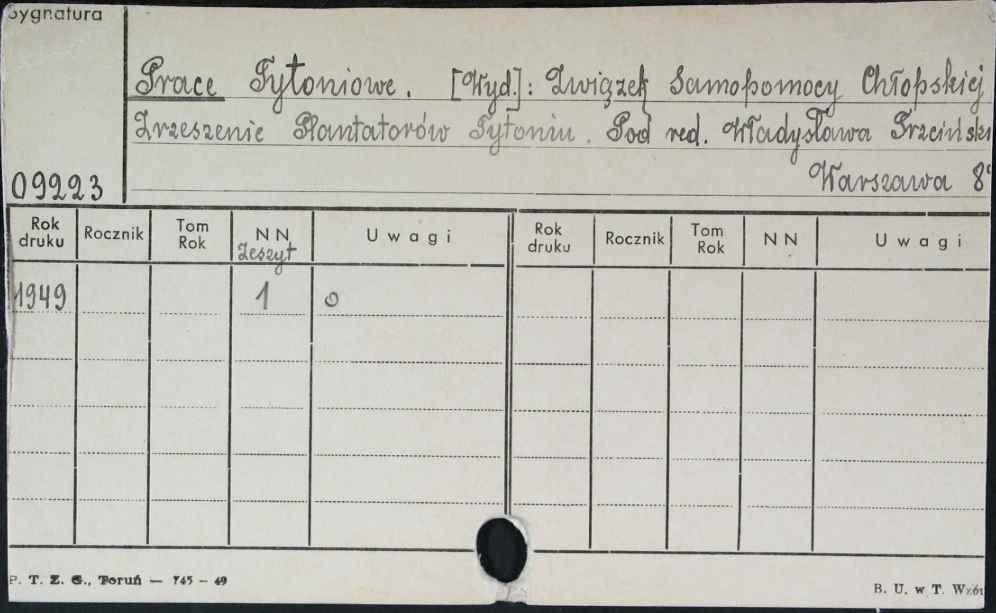 Sygnatura
Prace Tytoniowe. [Wyd.]: Związek Samopomocy Chłopskiej
Zrzeszenie Plantatorów Tytoniu. Pod red. Władysława Trzcińsk
09223
Warszawa 8°
Rok druku Rocznik Tom Rok NN Zeszyt Uwagi Rok druku Rocznik Tom Rok NN Uwagi
1949 1 o
P. T. Z. G., Toruń — 745 - 49
B. U. w T. Wz.61